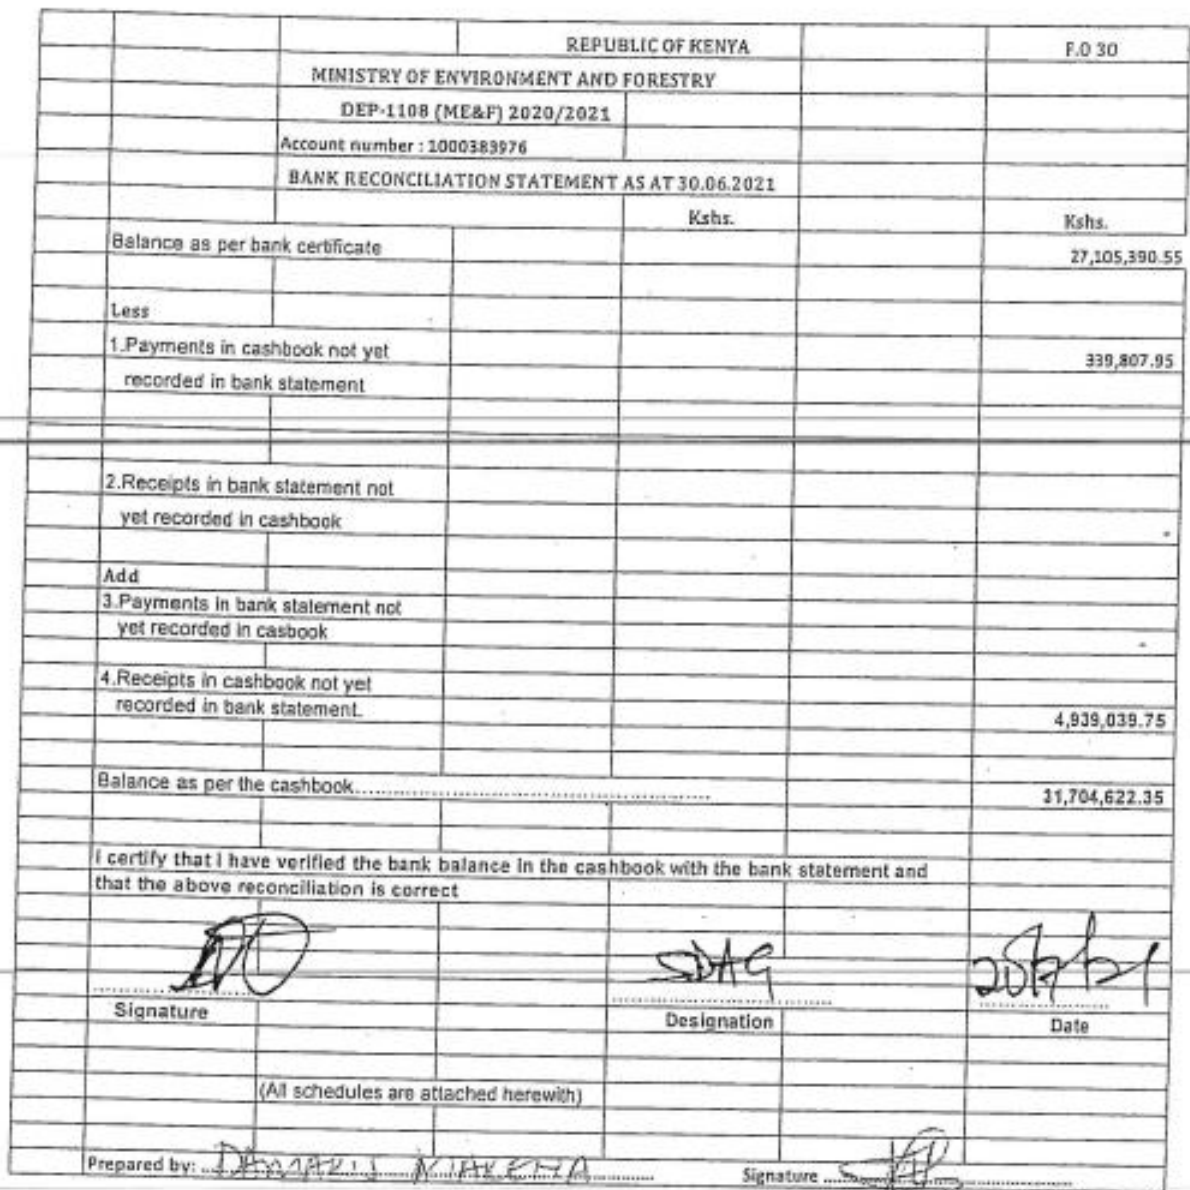 REPUBLIC OF KENYA F.O 30
MINISTRY OF ENVIRONMENT AND FORESTRY
DEP-1108 (ME&F) 2020/2021
Account number : 1000383976
BANK RECONCILIATION STATEMENT AS AT 30.06.2021
Kshs. Kshs.
Balance as per bank certificate 27,105,390.55
Less
1.Payments in cashbook not yet 339,807.95
recorded in bank statement
2.Receipts in bank statement not
yet recorded in cashbook -
Add
3.Payments in bank statement not
yet recorded in casbook -
4.Receipts in cashbook not yet
recorded in bank statement. 4,939,039.75
Balance as per the cashbook 31,704,622.35
I certify that I have verified the bank balance in the cashbook with the bank statement and
that the above reconciliation is correct
SDAG
Signature Designation Date
(All schedules are attached herewith)
Prepared by: DAMARIS Signature